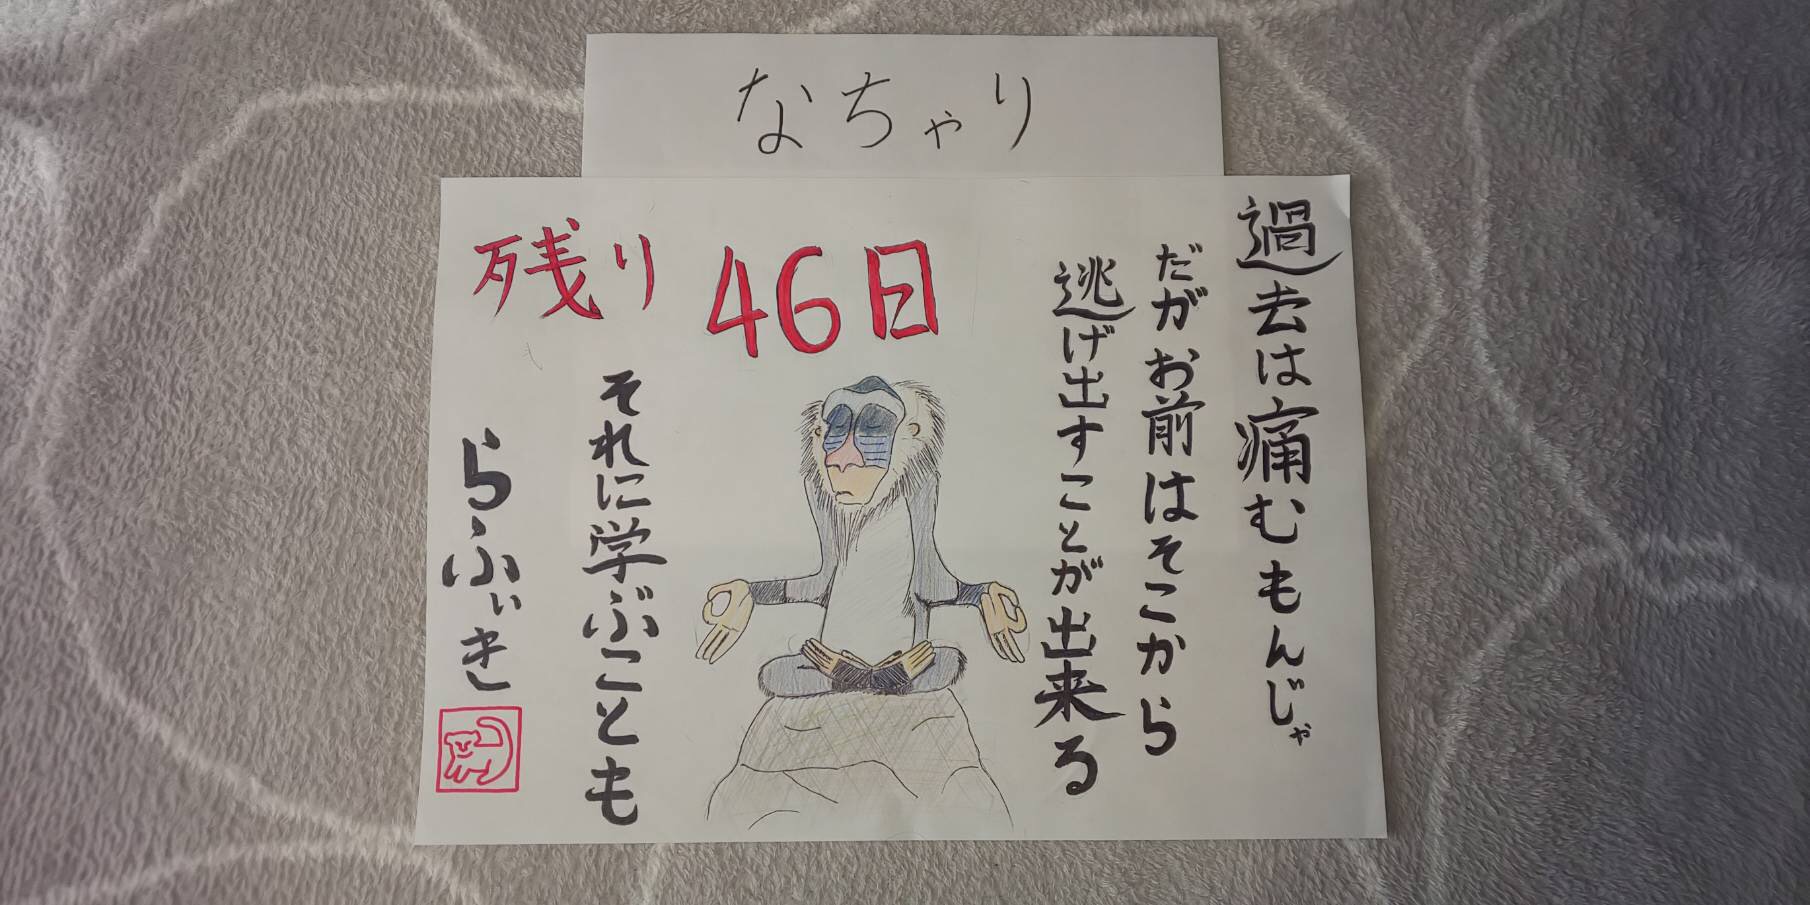 なちゃり
残り46日
過去は痛むもんじゃ
だがお前はそこから
逃げ出すことが出来る
それに学ぶことも
らふぃき